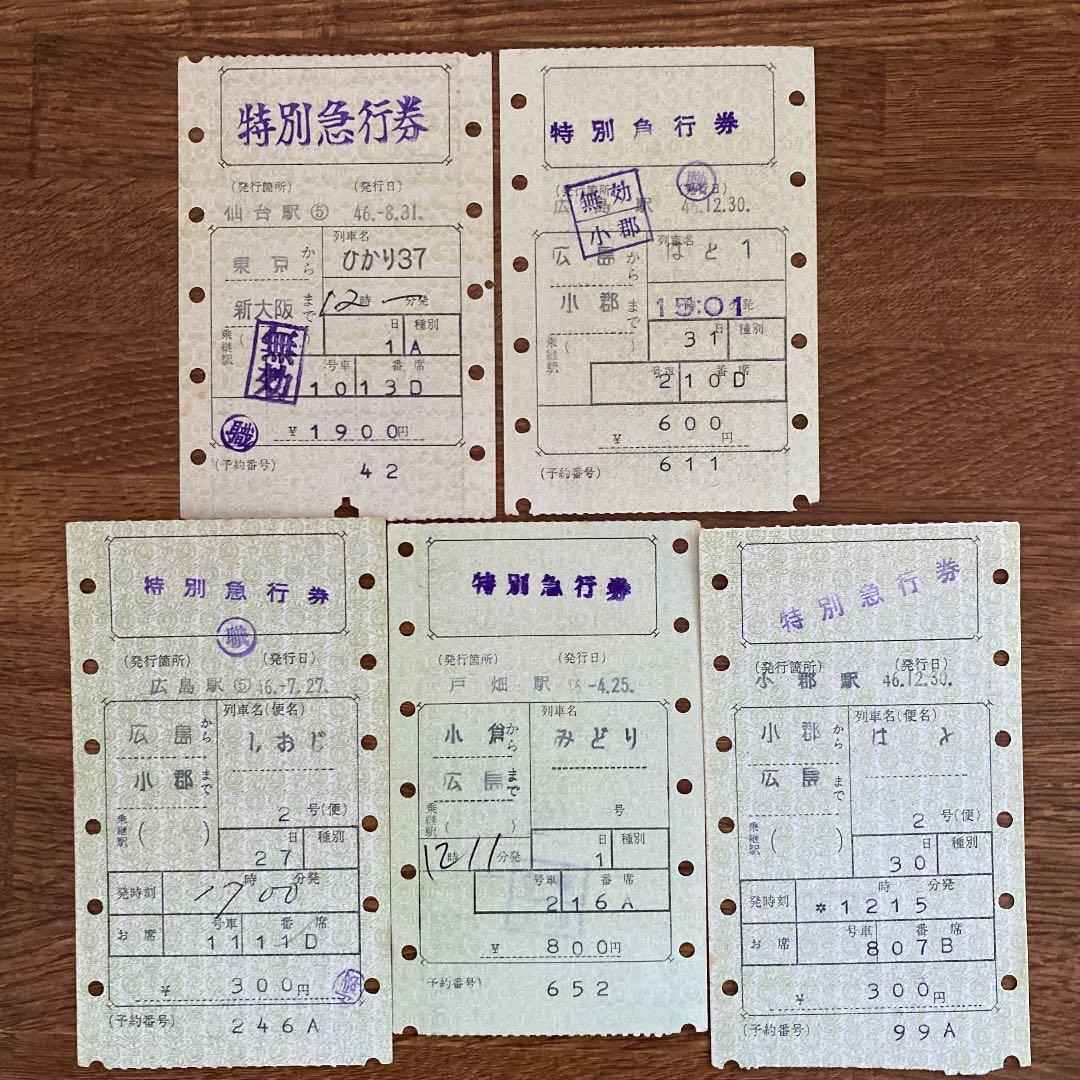 特別急行券
(発行箇所) (発行日)
仙台駅⑤ 46.-8.31.
列車名
東京から ひかり37
新大阪まで 12時 一分発
乗継駅 ( )
日 種別
1 A
無効
号車 番席
10 13D
職
¥1900円
(予約番号) 42
特別急行券
(発行箇所) (発行日)
職
広島駅 46.12.30.
無効
小郡
列車名
広島から はと1
小郡まで 15:01
時 分発
乗継駅 ( )
日 種別
31
号車 番席
2 10D
¥600円
(予約番号) 611
特別急行券
職
(発行箇所) (発行日)
広島駅⑤ 46.-7.27.
列車名(便名)
広島から しおじ
小郡まで
2号(便)
乗継駅 ( )
日 種別
27
発時刻 17時00分発
号車 番席
お席 11 11D
¥300円
(予約番号) 246A
特別急行券
(発行箇所) (発行日)
戸畑駅 -4.25.
列車名
小倉から みどり
広島まで
号
乗継駅 ( )
日 種別
1
12時11分発
号車 番席
2 16A
¥800円
(予約番号) 652
特別急行券
(発行箇所) (発行日)
小郡駅 46.12.30.
列車名(便名)
小郡から はと
広島まで
2号(便)
乗継駅 ( )
日 種別
30
時 分発
発時刻 *1215
号車 番席
お席 8 07B
¥300円
(予約番号) 99A